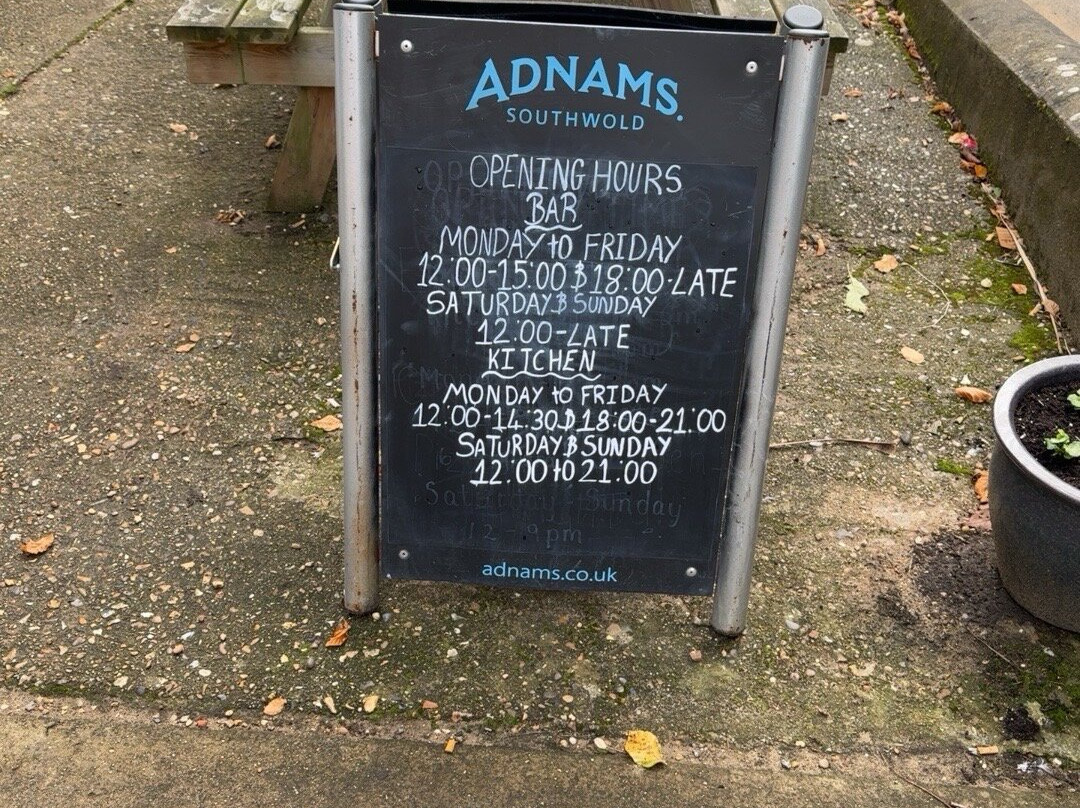 ADNAMS
SOUTHWOLD
OPENING HOURS
BAR
MONDAY to FRIDAY
12:00-15:00 & 18:00-LATE
SATURDAY & SUNDAY
12:00-LATE
KITCHEN
MONDAY to FRIDAY
12:00-14:30 & 18:00-21:00
SATURDAY & SUNDAY
12:00 to 21:00
Saturday - Sunday
12 - 9pm
adnams.co.uk